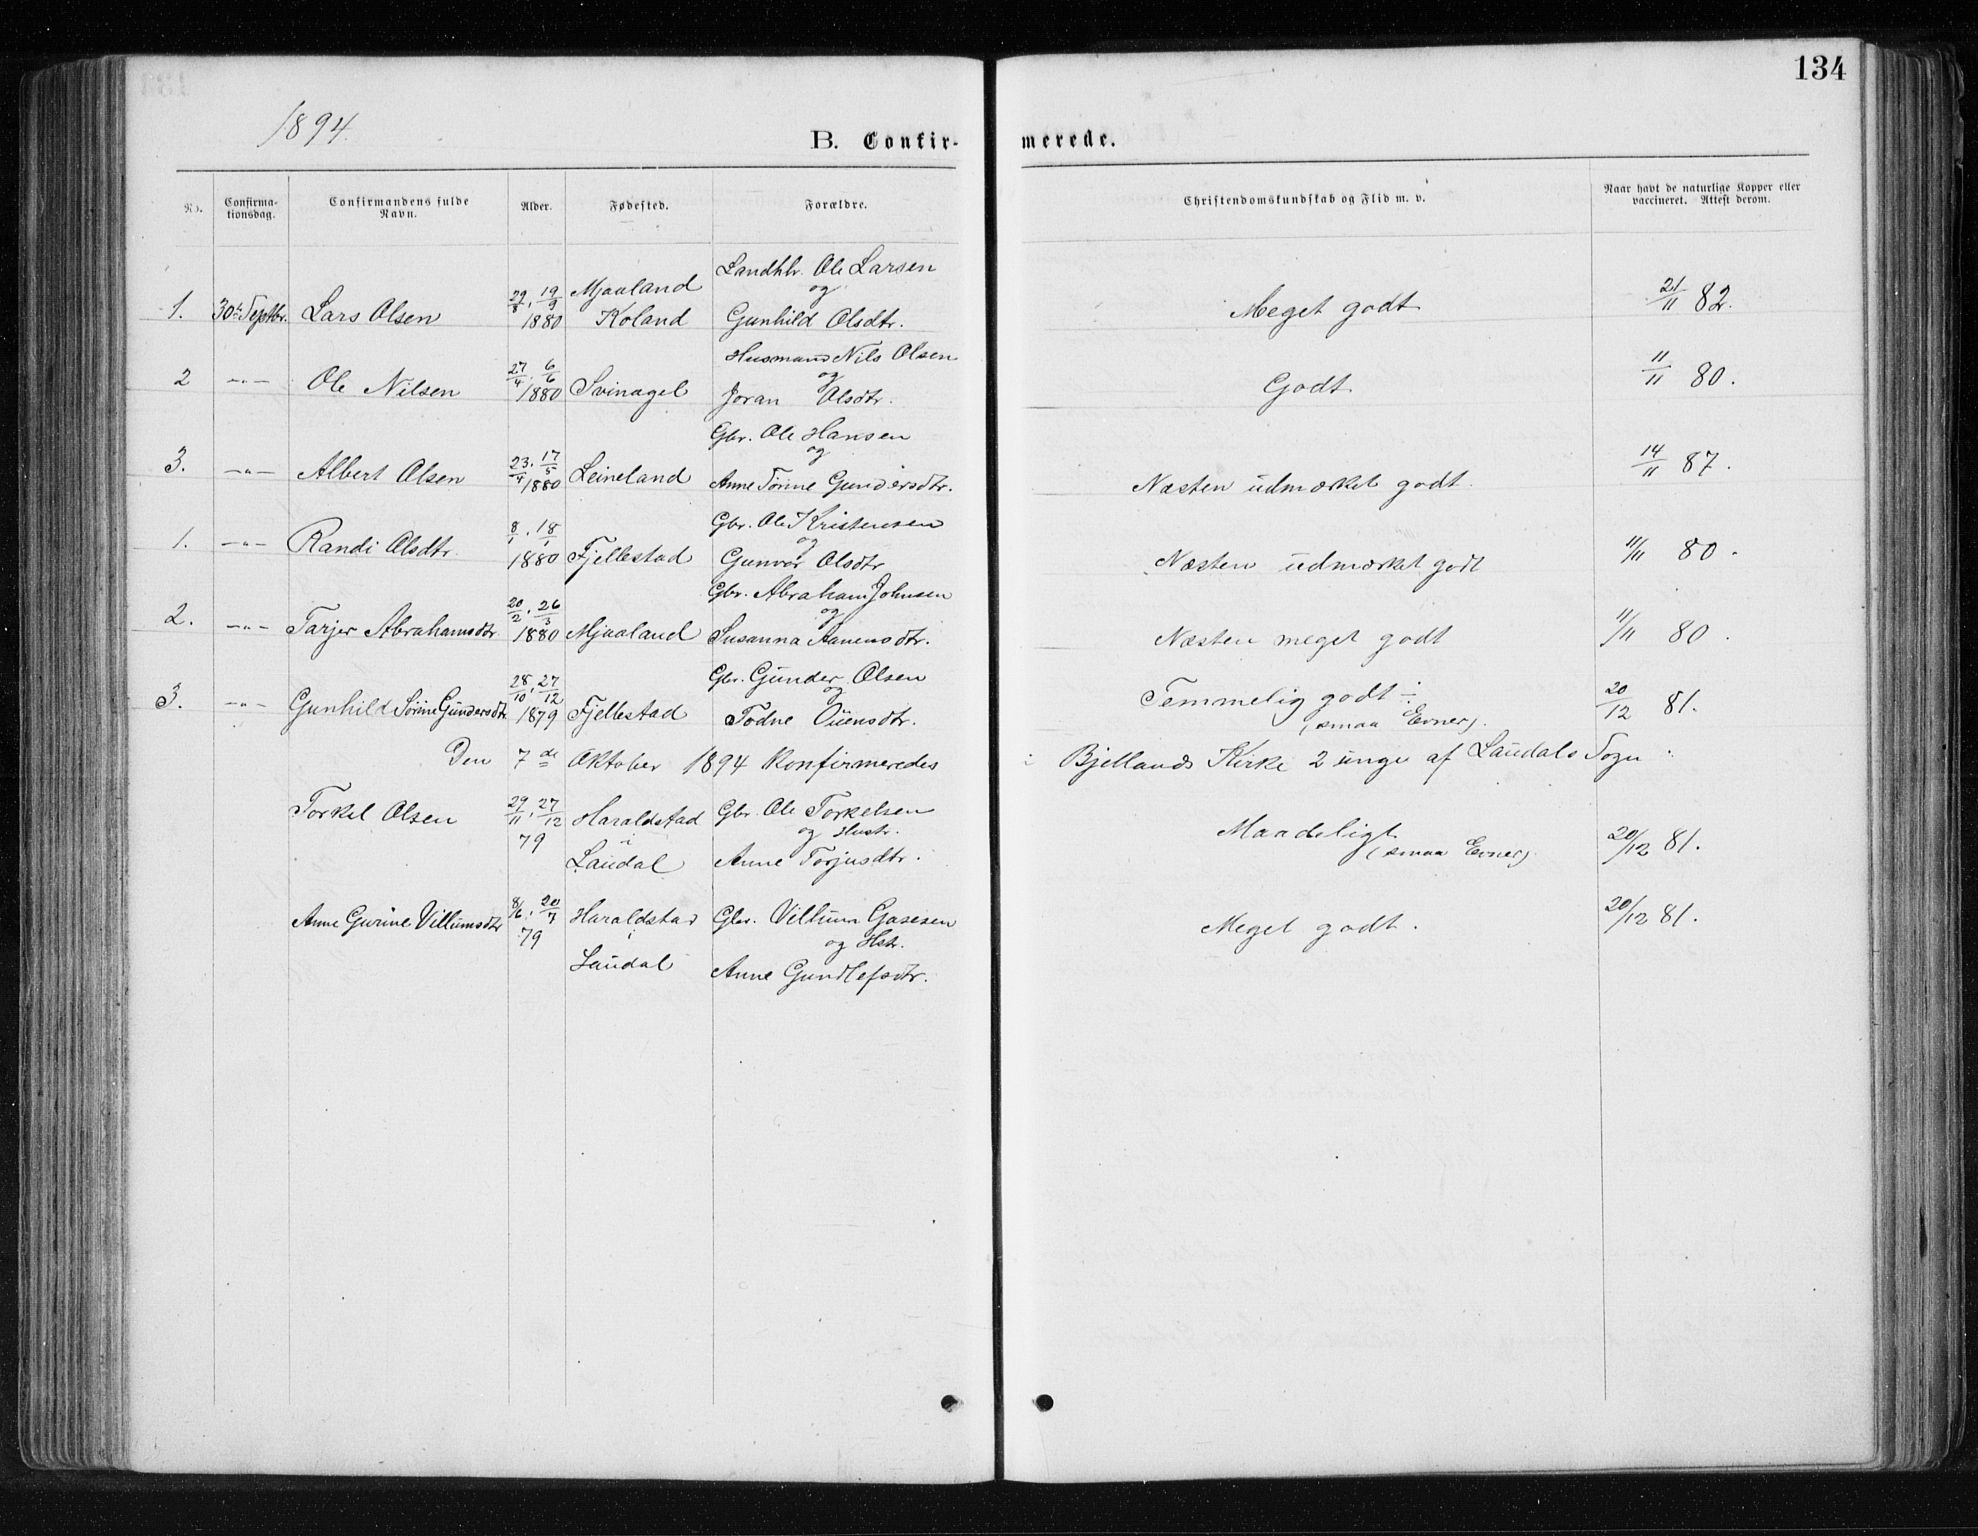 134
1894.
B. Confir- merede.
No. Confirma-tionsdag. Confirmandens fulde Navn. Alder. Fødested. Forældre. Christendomskundskab og Flid m. v. Naar havt de naturlige Kopper eller vaccineret. Attest derom.
Landhlr. Ole Larsen
1. 30te Septbr. Lars Olsen 29/8, 19/9 1880 Mjaaland Koland og Gunhild Olsdtr. Meget godt 21/11 82.
Husmand Nils Olsen
2 -"- Ole Nilsen 27/4, 6/6 1880 Svinagel og Joran Olsdtr. Godt 11/11 80.
Gbr. Ole Hansen
3. -"- Albert Olsen 23/4, 17/5 1880 Leineland og Anne Tørine Gundersdtr. Næsten udmærket godt. 14/11 87.
Gbr. Ole Kristensen
1. -"- Randi Olsdtr. 8/1, 18/1 1880 Fjellestad og Gunvor Olsdtr Næsten udmærket godt 11/11 80.
Gbr. Abraham Johnsen
2. -"- Tarjer Abrahamsdtr 20/2, 26/3 1880 Mjaaland og Susanna Aanensdtr. Næsten meget godt 11/11 80.
Gbr. Gunder Olsen
3. -"- Gunhild Sørine Gundersdtr 28/10, 27/12 1879 Fjellestad og Todne Ouensdtr. Temmelig godt ÷ (smaa Evner). 20/12 81.
Den 7de Oktober 1894 konfirmeredes i Bjellands Kirke 2 unge af Laudals Sogn:
Torkel Olsen 29/11, 27/12 79 Haraldstad i Laudal Gbr. Ole Torkelsen og Hustr. Anne Torjusdtr. Maadeligt (smaa Evner). 20/12 81.
Anne Gurine Villumsdtr 8/6, 20/7 79 Haraldstad i Laudal Gbr. Villum Gasesen og Hstr. Anne Gundlefsdtr. Meget godt. 20/12 81.